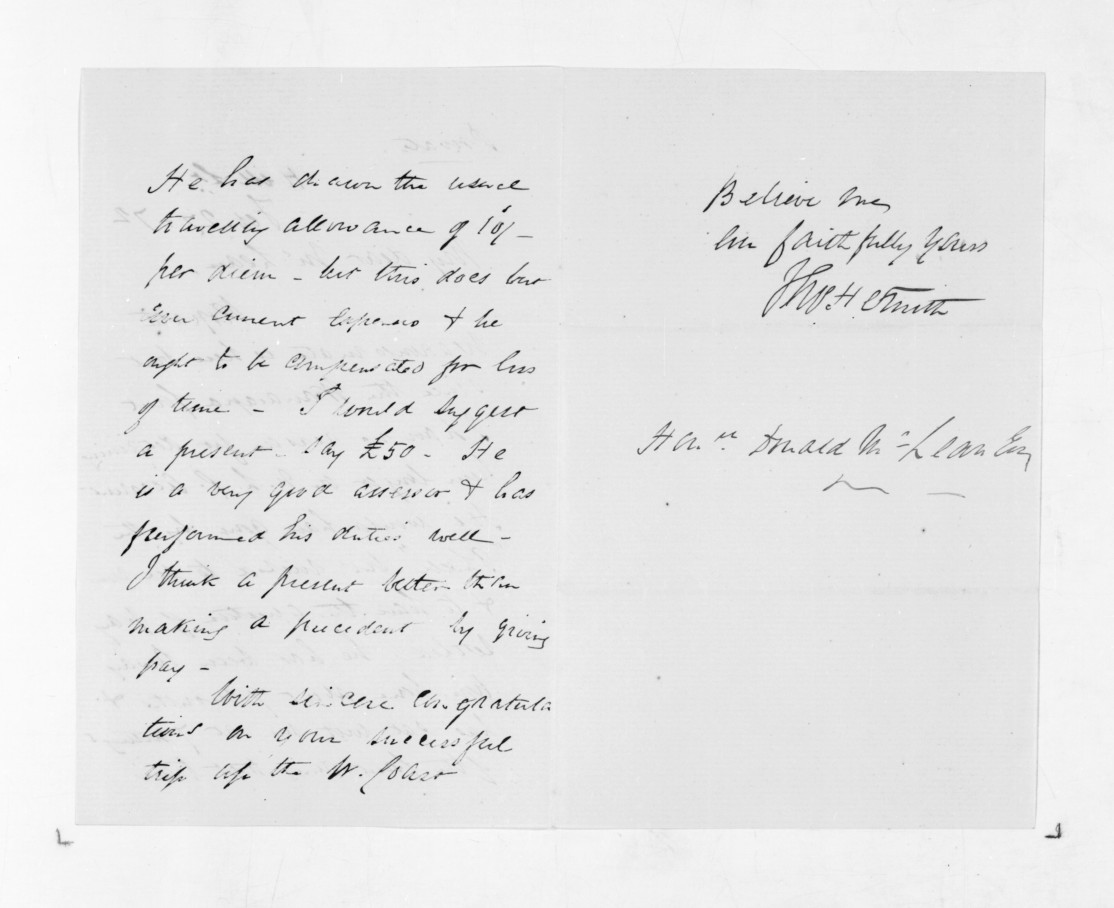 He has drawn the usual
travelling allowance of 10/-
per diem - but this does but
cover current expenses & he
ought to be compensated for loss
of time - I would suggest
a present - say £50 - He
is a very good assessor & has
performed his duties well -
I think a present better than
making a precedent by giving
pay -
With sincere congratula
tions on your successful
trip up the W. Coast
Believe me
faithfully Yours
Thos H Smith
Honble Donald McLean Esq